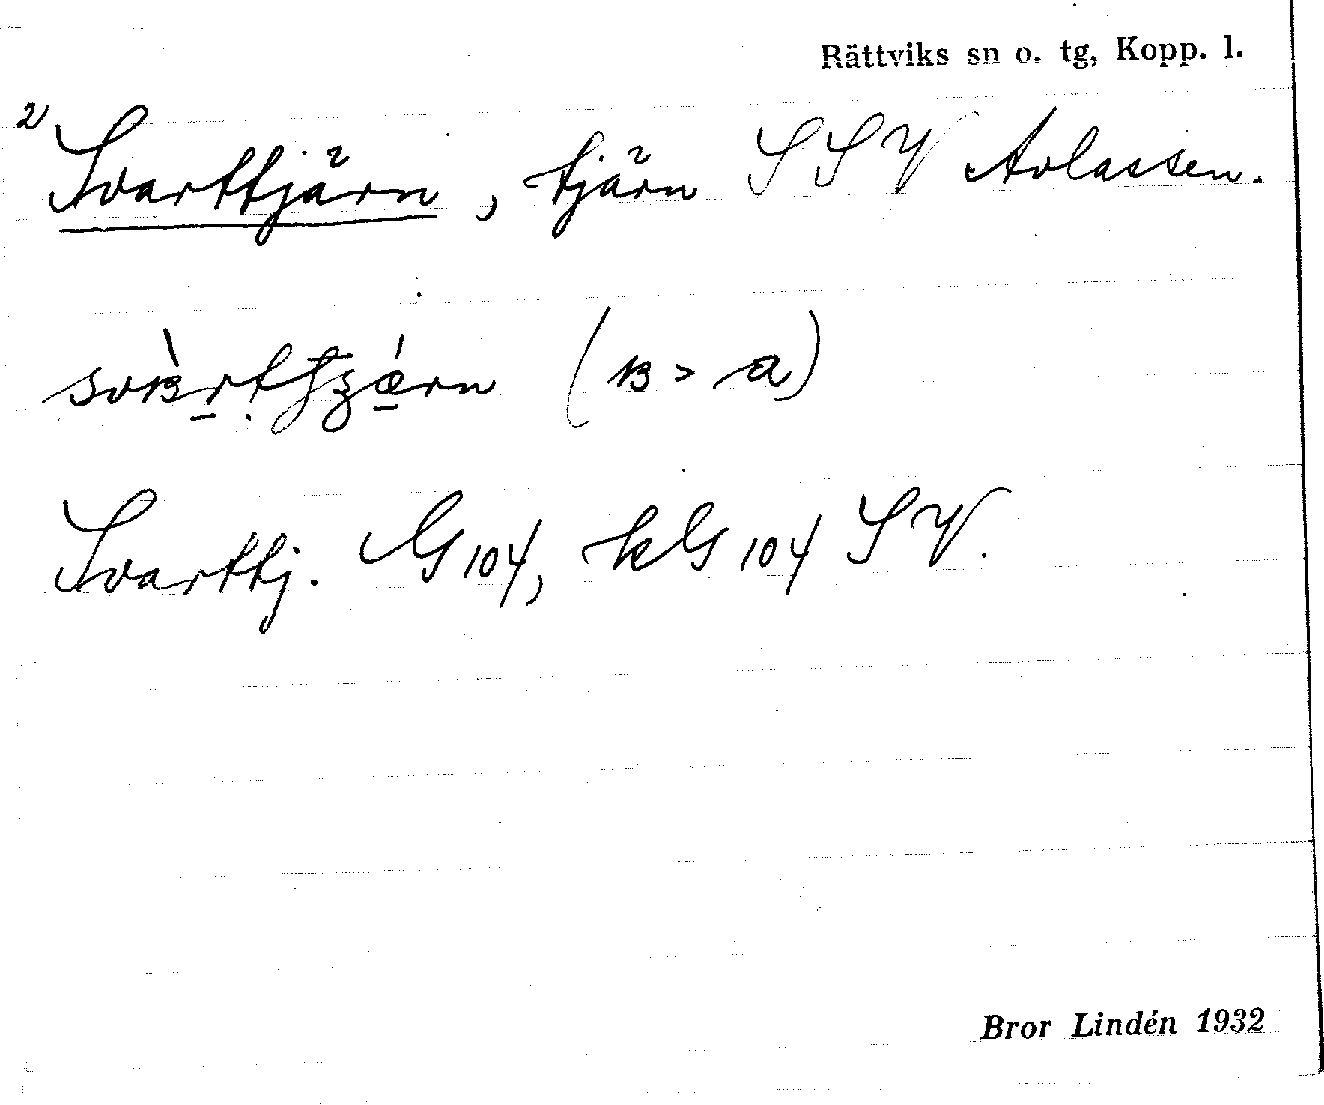 Rättviks sn o. tg, Kopp. l.
2) Svarttjärn, tjärn SSV Avlassen.
(ʙ > a)
Svarttj. G 104, kG 104 SV.
Bror Lindén 1932